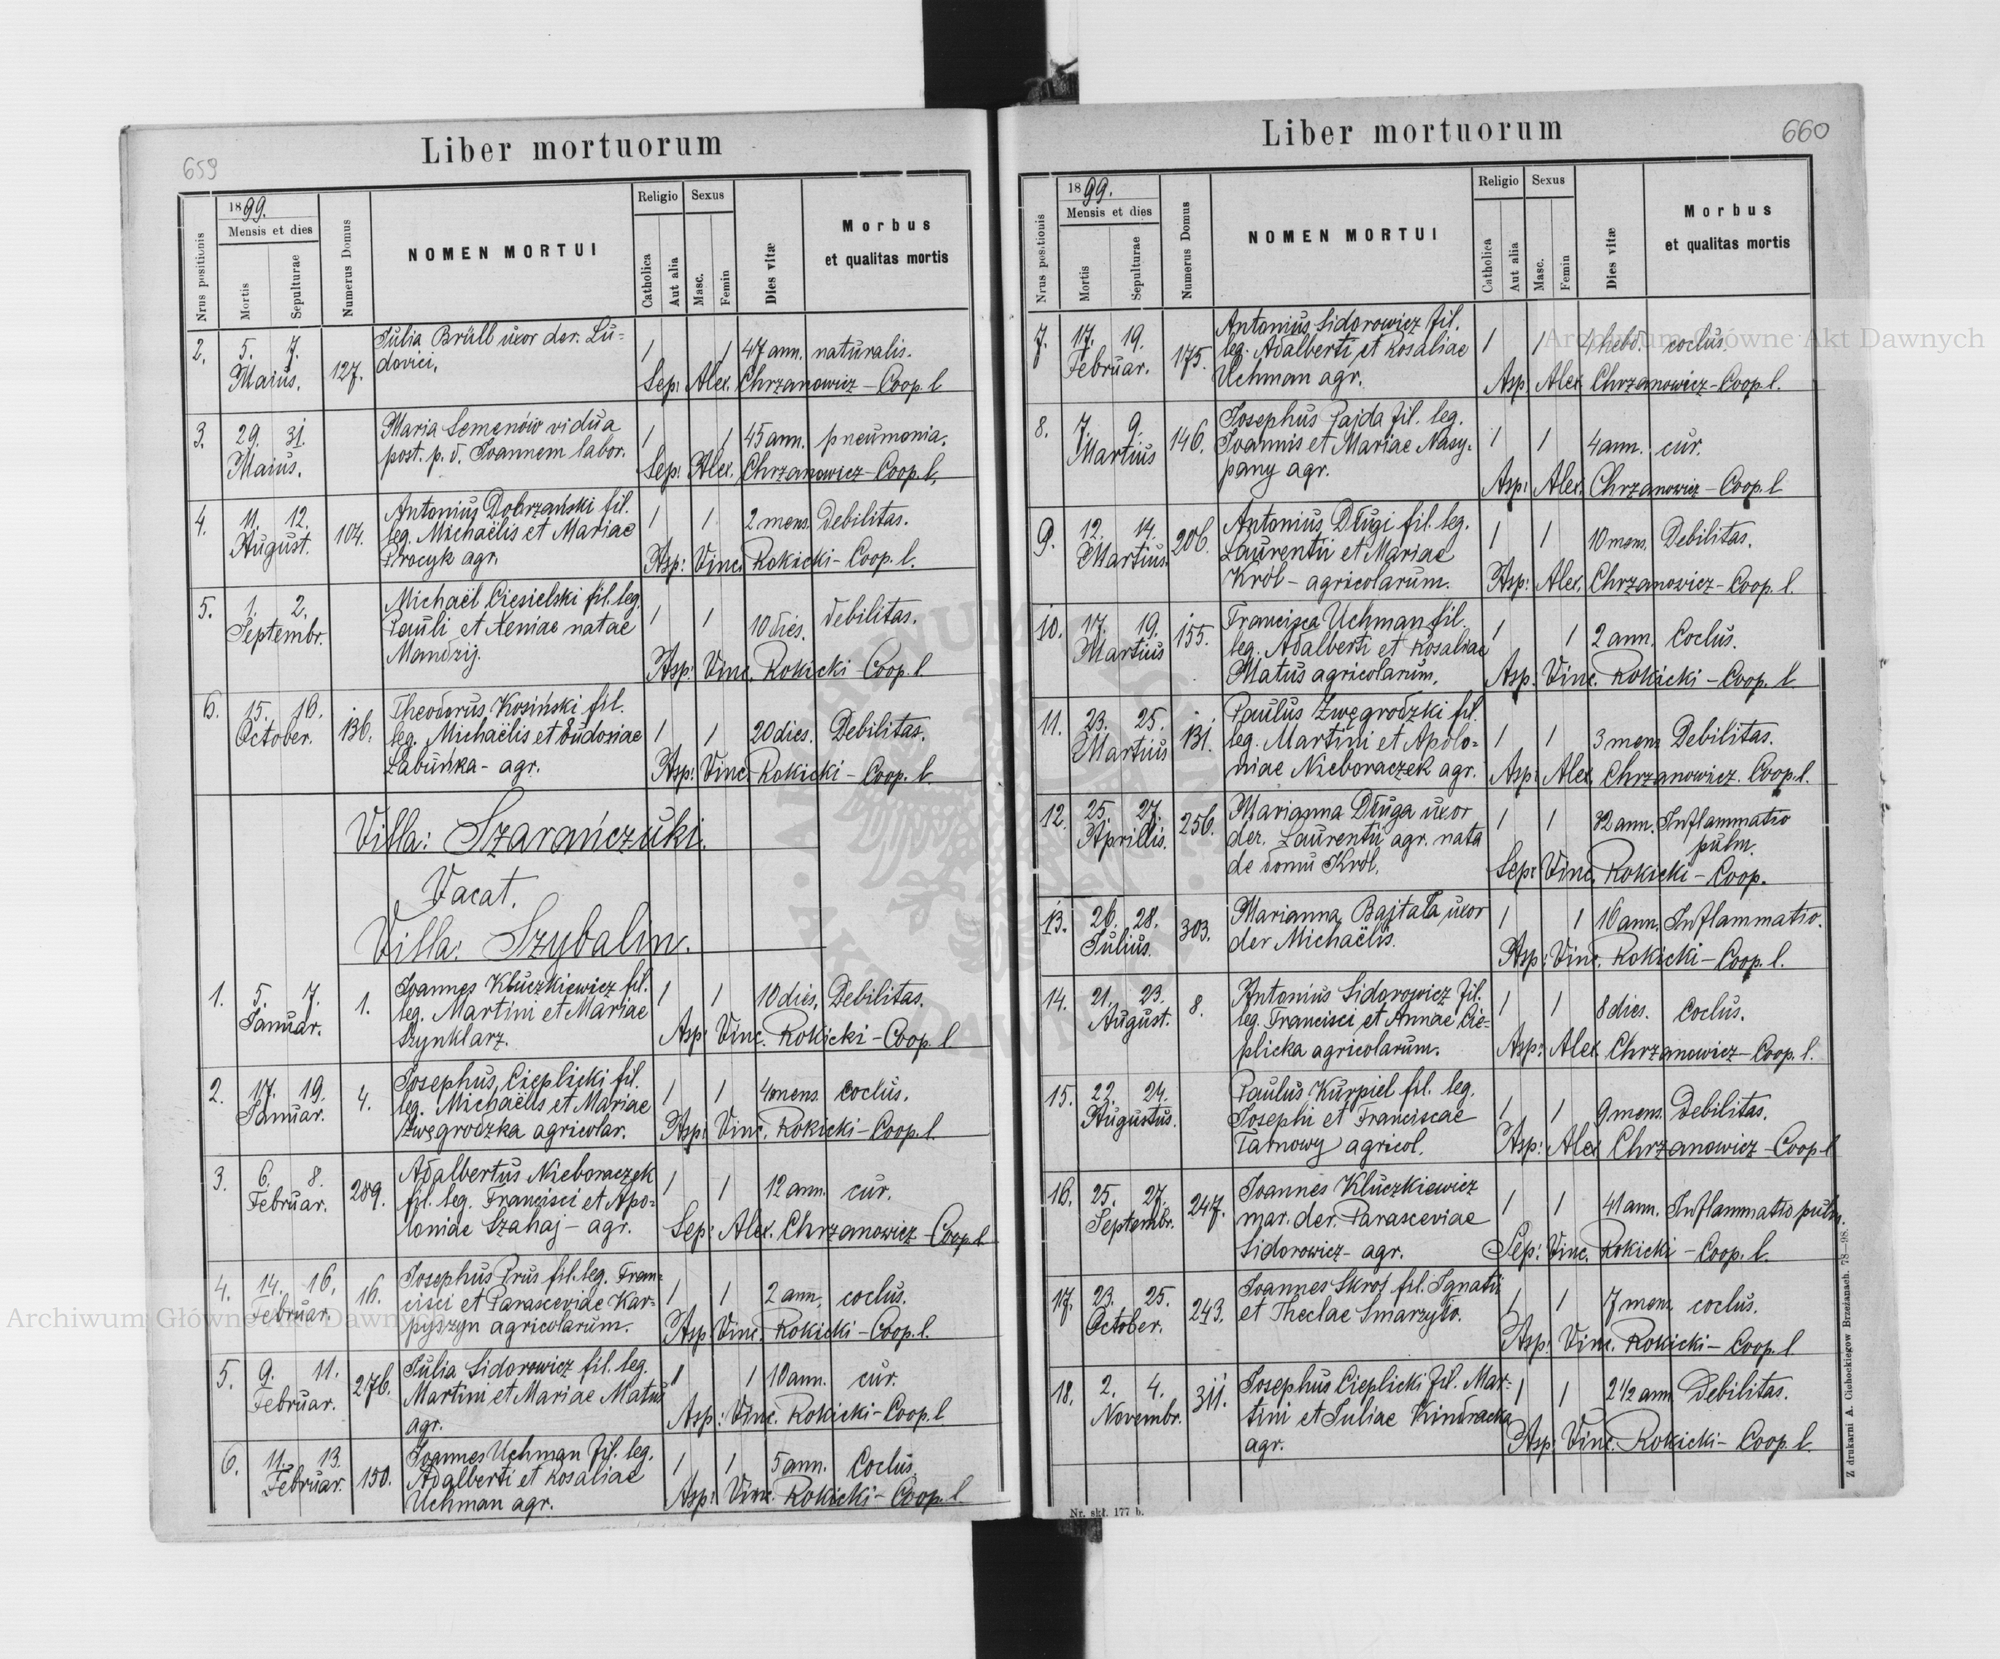 659
Liber mortuorum
Nrus positionis
1899.
Mensis et dies
Mortis
Sepulturae
Numerus Domus
NOMEN MORTUI
Religio
Catholica
Aut alia
Sexus
Masc.
Femin
Dies vitæ
Morbus
et qualitas mortis
2. 5. 7. Maius. 127. Julia Brüll uxor der. Lu-
dovici. 1 1 47 ann. naturalis.
Sep: Alex. Chrzanowicz - Coop. l
3. 29. 31. Maius. Maria Semenów vidua
post. p. d. Joannem labor. 1 1 45 ann. pneumonia.
Sep: Alex. Chrzanowicz - Coop. l.
4. 11. 12. August. 104. Antonius Dobrzański fil.
leg. Michaëlis et Mariae
Procyk agr. 1 1 2 mens. debilitas.
Asp: Vinc. Rokicki - Coop. l.
5. 1. 2. Septembr. Michaël Ciesielski fil. leg.
Pauli et Xeniae natae
Mandzij. 1 1 10 dies. debilitas.
Asp: Vinc. Rokicki - Coop. l.
6. 15. 16. October. 136. Theodorus Kosiński fil.
leg. Michaëlis et Eudoniae
Łabuńka - agr. 1 1 20 dies. Debilitas.
Asp: Vinc. Rokicki - Coop. l
Villa: Szarańczuki.
Vacat.
Villa: Szybalin.
1. 5. 7. Januar. 1. Joannes Kluczkiewicz fil.
leg. Martini et Mariae
Szynklarz. 1 1 10 dies, Debilitas.
Asp: Vinc. Rokicki - Coop. l
2. 17. 19. Januar. 4. Josephus Cieplicki fil.
leg. Michaëlis et Mariae
Zwęgrodzka agricolar. 1 1 4 mens. coclus.
Asp: Vinc. Rokicki - Coop. l.
3. 6. 8. Februar. 289. Adalbertus Nieboraczek
fil. leg. Francisci et Apo-
loniae Szahaj - agr. 1 1 12 ann. cur.
Sep: Alex. Chrzanowicz - Coop. l
4. 14. 16. Februar. 16. Josephus Prus fil. leg. Fran-
cisci et Parasceviae Kar-
pyszyn agricolarum. 1 1 2 ann. coclus.
Asp: Vinc. Rokicki - Coop. l.
5. 9. 11. Februar. 276. Julia Sidorowicz fil. leg.
Martini et Mariae Matus
agr. 1 1 10 ann. cur.
Asp: Vinc. Rokicki - Coop. l
6. 11. 13. Februar. 150. Joannes Uchman fil. leg.
Adalberti et Rosaliae
Uchman agr. 1 1 5 ann. Coclus.
Asp: Vinc. Rokicki - Coop. l
660
Liber mortuorum
Nrus positionis
1899.
Mensis et dies
Mortis
Sepulturae
Numerus Domus
NOMEN MORTUI
Religio
Catholica
Aut alia
Sexus
Masc.
Femin
Dies vitæ
Morbus
et qualitas mortis
7. 17. 19. Februar. 175. Antonius Sidorowicz fil.
leg. Adalberti et Rosaliae
Uchman agr. 1 1 4 hebd. coclus.
Asp: Alex. Chrzanowicz - Coop. l.
8. 7. 9. Martius 146. Josephus Pajda fil. leg.
Joannis et Mariae Nasy-
pany agr. 1 1 4 ann. cur.
Asp: Alex. Chrzanowicz - Coop. l
9. 12. 14. Martius. 206. Antonius Długi fil. leg.
Laurentii et Mariae
Król - agricolarum. 1 1 10 mens. Debilitas.
Asp: Alex. Chrzanowicz - Coop. l.
10. 17. 19. Martius 155. Francisca Uchman fil.
leg. Adalberti et Rosaliae
Matus agricolarum. 1 1 2 ann. Coclus.
Asp: Vinc. Rokicki - Coop. l
11. 23. 25. Martius 131. Paulus Zwęgrodzki fil.
leg. Martini et Apolo-
niae Nieboraczek agr. 1 1 3 mens Debilitas.
Asp: Alex. Chrzanowicz. Coop. l.
12. 25. 27. Aprillis. 256. Marianna Długa uxor
der. Laurentii agr. nata
de domu Król. 1 1 32 ann. Inflammatio
pulm.
Sep: Vinc. Rokicki - Coop.
13. 26. 28. Julius. 303. Marianna Bajtała uxor
der Michaëlis. 1 1 16 ann. Inflammatio.
Asp: Vinc. Rokicki - Coop. l.
14. 21. 23. August. 8. Antonius Sidorowicz fil.
leg. Francisci et Annae Cie-
plicka agricolarum. 1 1 8 dies. coclus.
Asp: Alex Chrzanowicz - Coop. l.
15. 22. 24. Augustus. Paulus Kurpiel fil. leg.
Josephi et Franciscae
Tarnowy agricol. 1 1 9 mens. Debilitas.
Asp: Alex Chrzanowicz - Coop. l
16. 25. 27. Septembr. 247. Joannes Kluczkiewicz
mar. der. Parasceviae
Sidorowicz - agr. 1 1 41 ann. Inflammatio pulm.
Sep: Vinc. Rokicki - Coop. l.
17. 23. 25. October. 243. Joannes Skrof fil. Ignatii
et Theclae Smarzyło. 1 1 7 mens. coclus.
Asp: Vinc. Rokicki - Coop. l
18. 2. 4. Novembr. 311. Josephus Cieplicki fil. Mar-
tini et Juliae Kindracka
agr. 1 1 2 1/2 ann Debilitas.
Asp: Vinc. Rokicki - Coop. l.
Nr. skł. 177 b.
Z drukarni A. Cichockiego w Brzeżanach. 78-98.
Archiwum Główne Akt Dawnych
Archiwum Główne Akt Dawnych